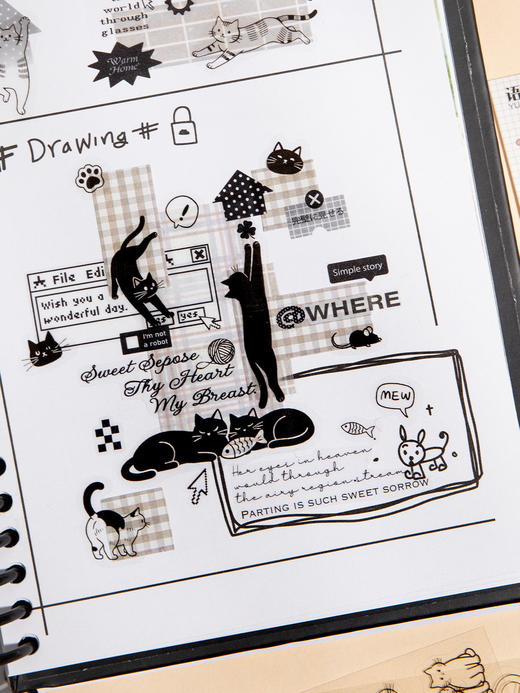 world
through
glasses
Warm
Home
# Drawing #
!
File Edi
Wish you a
wonderful day.
yes
I'm not
a robot
Simple story
@WHERE
Sweet Sepose
Thy Heart
My Breast.
MEW
Her eyes in heaven
would through
the airy region stream
PARTING IS SUCH SWEET SORROW